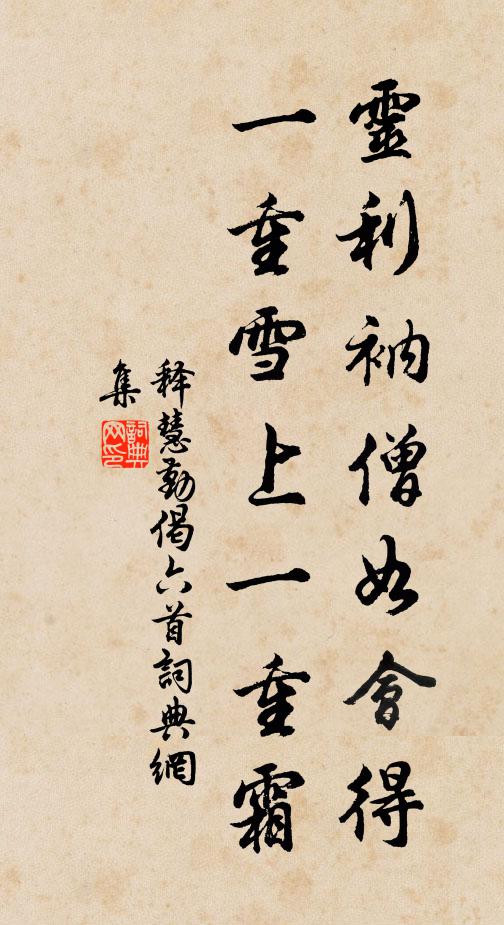 靈利衲僧如會得
一重雪上一重霜
释慧勤偈六首詞典網
集
詞典
网印